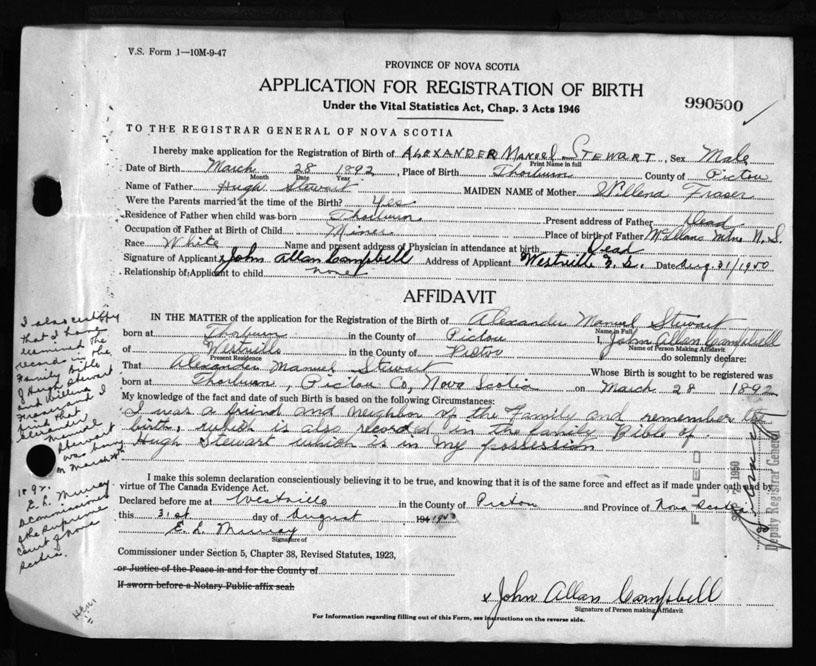 V.S. Form 1—10M-9-47
PROVINCE OF NOVA SCOTIA
APPLICATION FOR REGISTRATION OF BIRTH
Under the Vital Statistics Act, Chap. 3 Acts 1946
990500
TO THE REGISTRAR GENERAL OF NOVA SCOTIA
I hereby make application for the Registration of Birth of ALEXANDER MANUEL STEWART, Sex Male
Print Name in full
Date of Birth March 28 1892, Place of Birth Thorburn County of Pictou
Month Date Year
Name of Father Hugh Stewart MAIDEN NAME of Mother Willena Fraser
Were the Parents married at the time of the Birth? Yes
Residence of Father when child was born Thorburn Present address of Father Dead
Occupation of Father at Birth of Child Miner Place of birth of Father McLellans Mtn N.S.
Race White Name and present address of Physician in attendance at birth Dead
Signature of Applicant x John Allan Campbell Address of Applicant Westville N.S. Date Aug. 31/1950
Relationship of Applicant to child none
AFFIDAVIT
IN THE MATTER of the application for the Registration of the Birth of Alexander Manuel Stewart
Name in Full
born at Thorburn in the County of Pictou I, John Allan Campbell
Name of Person Making Affidavit
of Westville in the County of Pictou do solemnly declare:
Present Residence
That Alexander Manuel Stewart Whose Birth is sought to be registered was
born at Thorburn, Pictou Co, Nova Scotia on March 28 1892
My knowledge of the fact and date of such Birth is based on the following Circumstances:
I was a friend and neighbor of the Family and remember the
birth, which is also recorded in the family Bible of
Hugh Stewart which is in my possession
I make this solemn declaration conscientiously believing it to be true, and knowing that it is of the same force and effect as if made under oath and by
virtue of The Canada Evidence Act.
Declared before me at Westville in the County of Pictou and Province of Nova Scotia
this 31st day of August 194 1950
E. L. Murray
Signature of
Commissioner under Section 5, Chapter 38, Revised Statutes, 1923,
or Justice of the Peace in and for the County of
If sworn before a Notary Public affix seal
x John Allan Campbell
Signature of Person making Affidavit
For Information regarding filling out of this Form, see instructions on the reverse side.
I also certify
that I have
examined the
records in the
Family Bible
of Hugh Stewart
and Willena
Fraser and I
find that
Alexander
Manuel
Stewart
was born
on March 28th
1892.
E. L. Murray
A Commissioner
of the Supreme
Court of Nova
Scotia.
FILED
1950
Deputy Registrar General